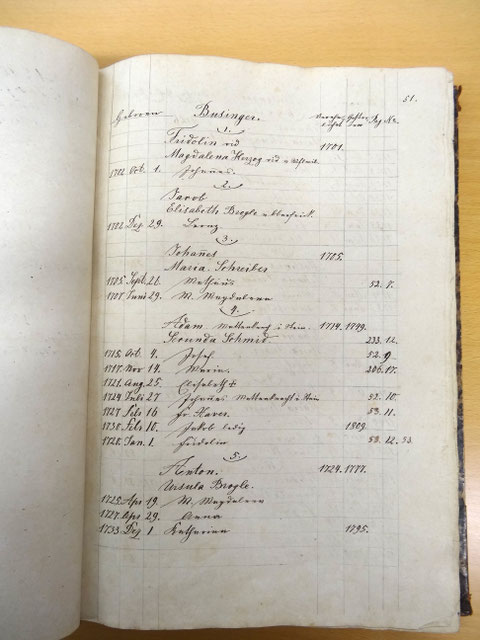 51.
Geboren Businger. Verehe- licht Gestor- ben Fg. No.
1.
Fridolin vid 1701.
Magdalena Herzog vid v.
1702. Oct. 1. Johannes.
2.
Jacob
Elisabeth Brogle v.
1702. Dez. 29.
3.
Johañes 1705.
Maria Schreiber
1705. Sept. 26. Matheus 52. 7.
1707. Juni 29. M. Magdalena
4.
Adam. i. Stein. 1714. 1779.
Secunda Schmid. 233. 12.
1715. Oct. 4. Josef. 52. 9
1717. Nov 14. Maria. 206. 17.
1721. Aug. 25. Elisabeth ‡
1724. Juli 27 Johannes i. Stein 52. 10.
1727. Feb 16 Fr. Xaver. 53. 11.
1730. Feb 10. Jakob ledig 1809.
1728. Jan. 1. Fridolin 53. 12. 53
5.
Anton. 1724. 1777.
Ursula Brogle.
1725. Apr 19. M. Magdalena
1727. Apr. 29. Anna
1733. Dez 1 Katharina 1795.